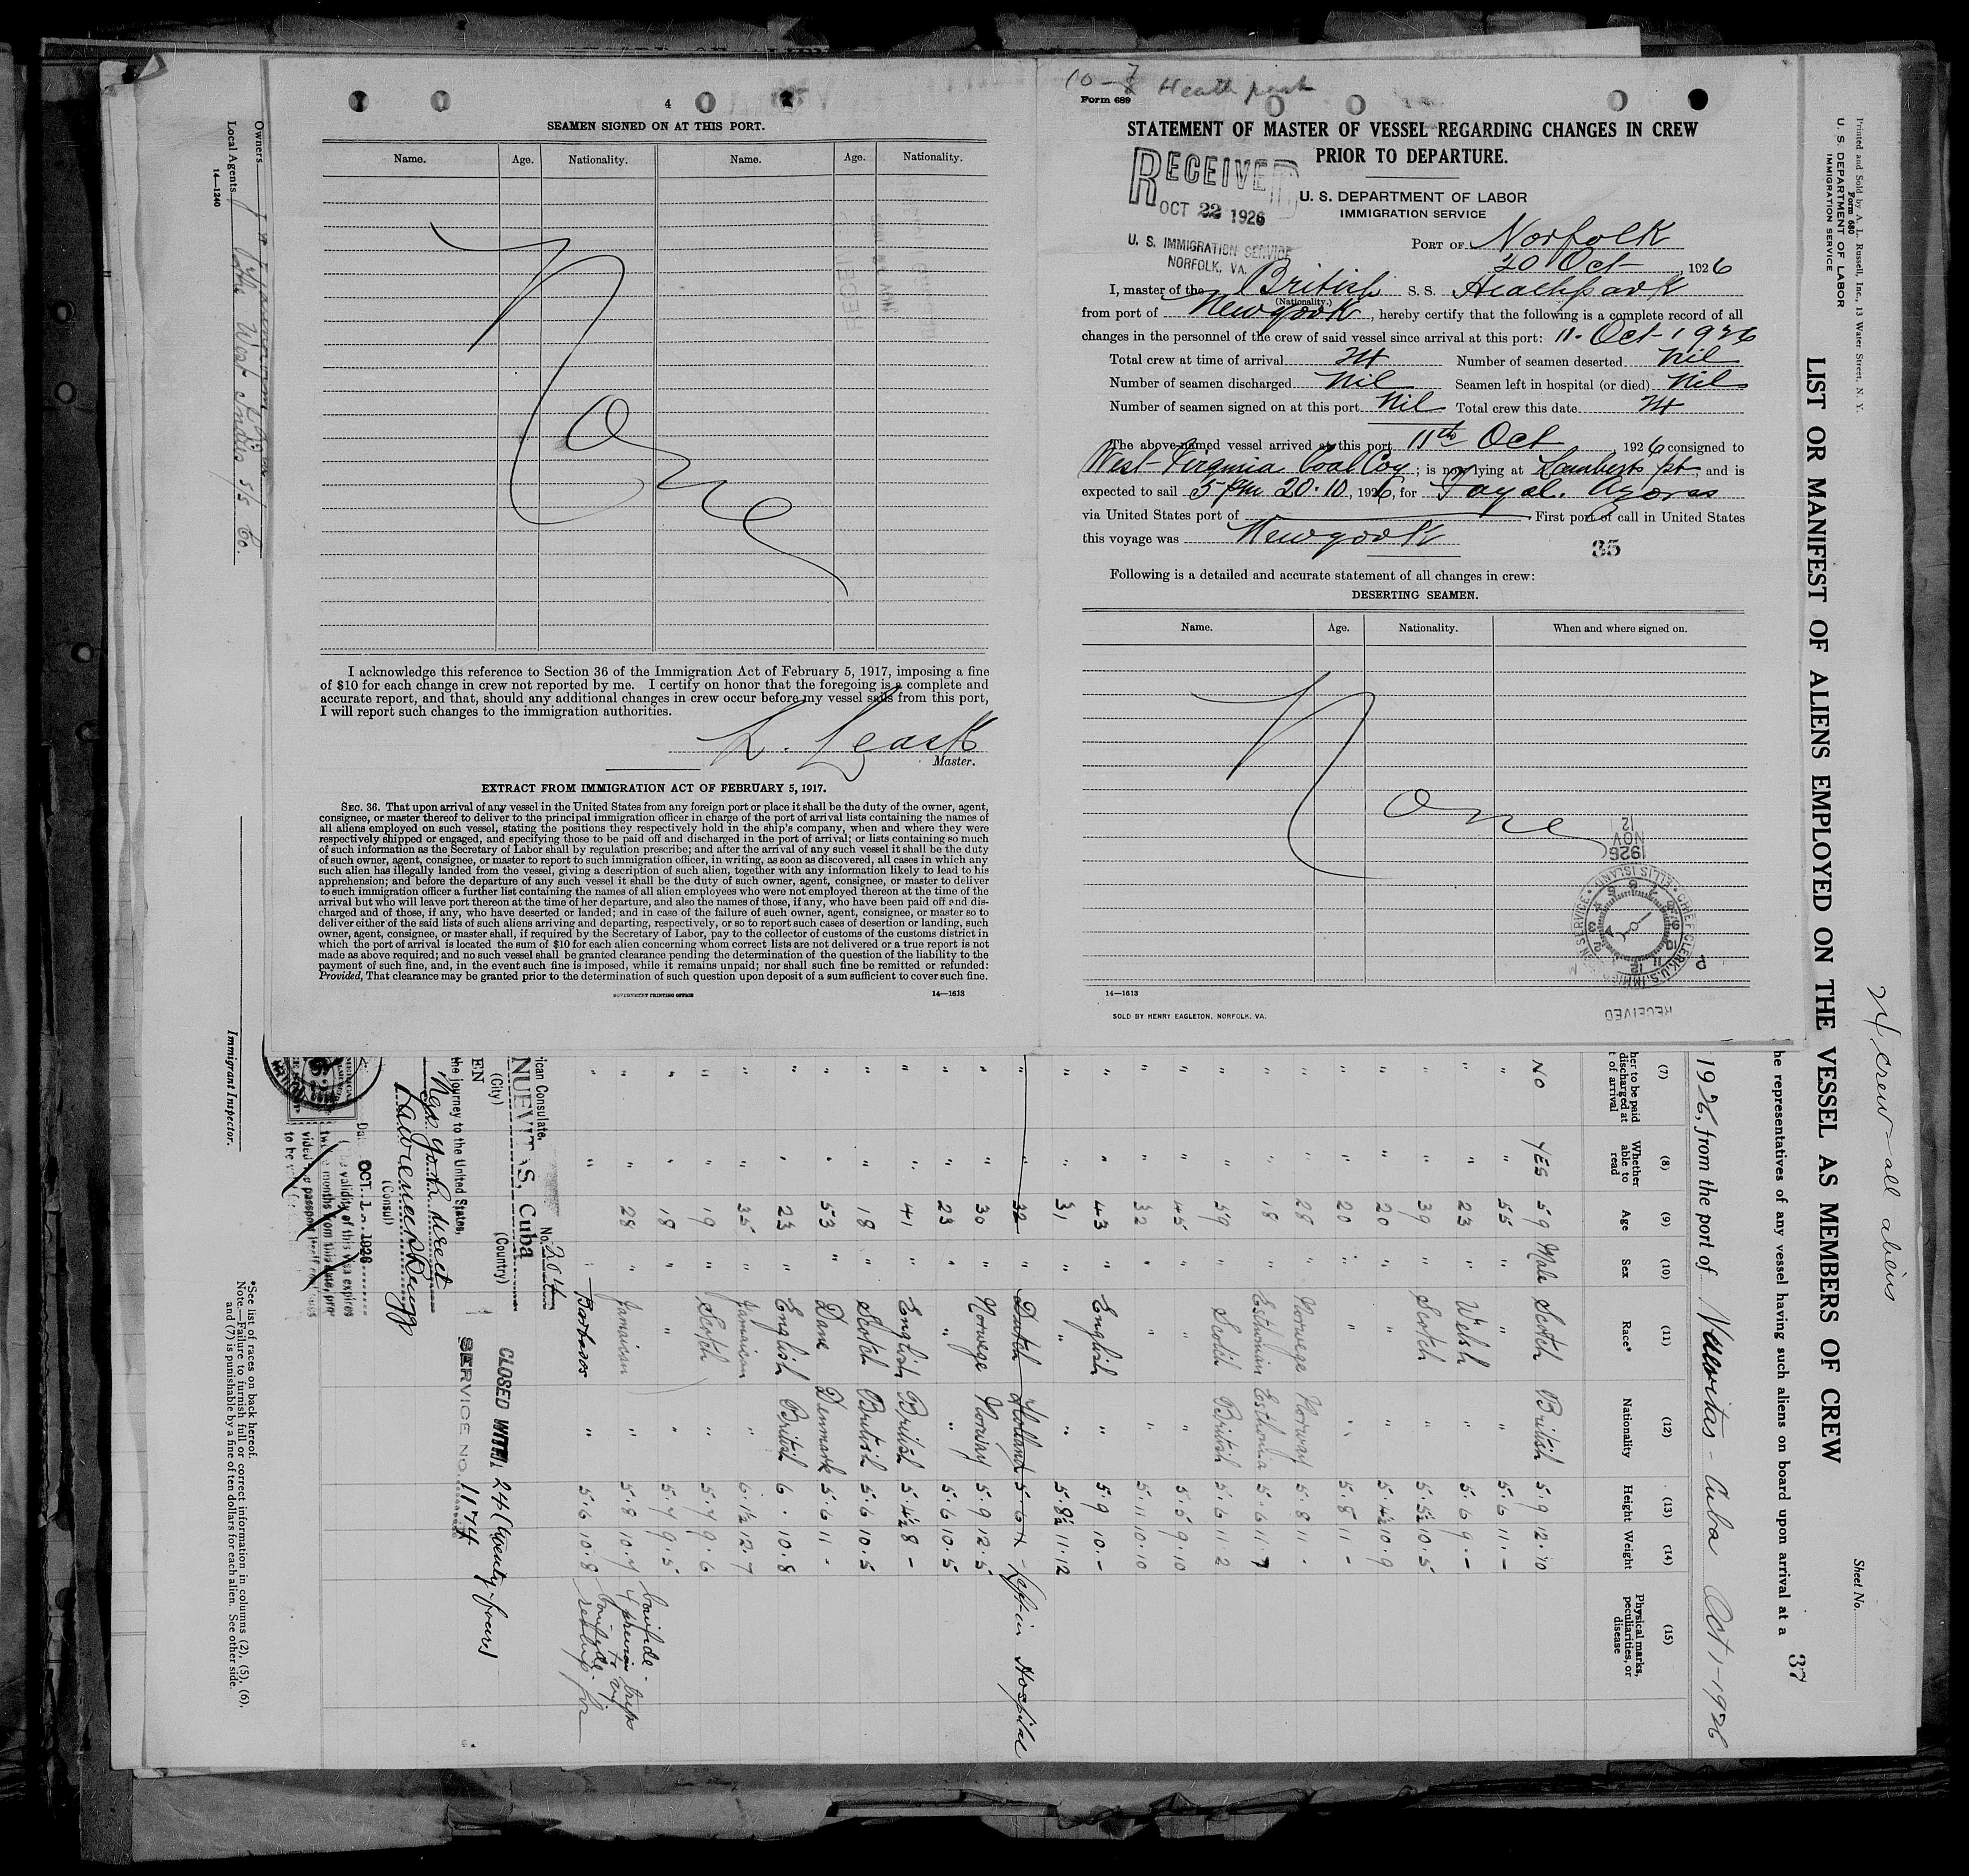 4
SEAMEN SIGNED ON AT THIS PORT.
Name. Age. Nationality. Name. Age. Nationality.
None
I acknowledge this reference to Section 36 of the Immigration Act of February 5, 1917, imposing a fine
of $10 for each change in crew not reported by me. I certify on honor that the foregoing is a complete and
accurate report, and that, should any additional changes in crew occur before my vessel sails from this port,
I will report such changes to the immigration authorities.
L. Leask
Master.
EXTRACT FROM IMMIGRATION ACT OF FEBRUARY 5, 1917.
SEC. 36. That upon arrival of any vessel in the United States from any foreign port or place it shall be the duty of the owner, agent,
consignee, or master thereof to deliver to the principal immigration officer in charge of the port of arrival lists containing the names of
all aliens employed on such vessel, stating the positions they respectively hold in the ship's company, when and where they were
respectively shipped or engaged, and specifying those to be paid off and discharged in the port of arrival; or lists containing so much
of such information as the Secretary of Labor shall by regulation prescribe; and after the arrival of any such vessel it shall be the duty
of such owner, agent, consignee, or master to report to such immigration officer, in writing, as soon as discovered, all cases in which any
such alien has illegally landed from the vessel, giving a description of such alien, together with any information likely to lead to his
apprehension; and before the departure of any such vessel it shall be the duty of such owner, agent, consignee, or master to deliver
to such immigration officer a further list containing the names of all alien employees who were not employed thereon at the time of the
arrival but who will leave port thereon at the time of her departure, and also the names of those, if any, who have been paid off and dis-
charged and of those, if any, who have deserted or landed; and in case of the failure of such owner, agent, consignee, or master so to
deliver either of the said lists of such aliens arriving and departing, respectively, or so to report such cases of desertion or landing, such
owner, agent, consignee, or master shall, if required by the Secretary of Labor, pay to the collector of customs of the customs district in
which the port of arrival is located the sum of $10 for each alien concerning whom correct lists are not delivered or a true report is not
made as above required; and no such vessel shall be granted clearance pending the determination of the question of the liability to the
payment of such fine, and, in the event such fine is imposed, while it remains unpaid; nor shall such fine be remitted or refunded:
Provided, That clearance may be granted prior to the determination of such question upon deposit of a sum sufficient to cover such fine.
GOVERNMENT PRINTING OFFICE 14—1613
10 - 7 Heathpark
Form 689
STATEMENT OF MASTER OF VESSEL REGARDING CHANGES IN CREW
PRIOR TO DEPARTURE.
RECEIVED
OCT 22 1926
U. S. IMMIGRATION SERVICE
NORFOLK, VA.
U. S. DEPARTMENT OF LABOR
IMMIGRATION SERVICE
PORT OF Norfolk
20 Oct , 1926
I, master of the British S. S. Heathpark
(Nationality.)
from port of Newyork, hereby certify that the following is a complete record of all
changes in the personnel of the crew of said vessel since arrival at this port: 11. Oct-1926
Total crew at time of arrival 24 Number of seamen deserted Nil
Number of seamen discharged Nil Seamen left in hospital (or died) Nil
Number of seamen signed on at this port Nil Total crew this date 24
The above-named vessel arrived at this port 11th Oct 1926 consigned to
West-Virginia Coal Coy; is now lying at Lamberts pt, and is
expected to sail 5 pm 20.10, 1926, for Fayal. Azores
via United States port of First port of call in United States
this voyage was Newyork
35
Following is a detailed and accurate statement of all changes in crew:
DESERTING SEAMEN.
Name. Age. Nationality. When and where signed on.
None
1926 NOV 12
CHIEF CLERK, U.S. IMMIGRATION SERVICE ELLIS ISLAND
RECEIVED
14—1613
SOLD BY HENRY EAGLETON, NORFOLK, VA.
24 crew - all aliens
Sheet No.
Printed and Sold by A. L. Russell, Inc., 13 Water Street, N. Y.
Form 680
U. S. DEPARTMENT OF LABOR
IMMIGRATION SERVICE
LIST OR MANIFEST OF ALIENS EMPLOYED ON THE VESSEL AS MEMBERS OF CREW
37
he representatives of any vessel having such aliens on board upon arrival at a
1926, from the port of Nuevitas - Cuba Oct 1-1926
(7) (8) (9) (10) (11) (12) (13) (14) (15)
her to be paid discharged at of arrival Whether able to read Age Sex Race* Nationality Height Weight Physical marks, peculiarities, or disease
NO YES 59 Male Scotch British 5.9 12.10
" " 55 " " " 5.6 11.-
" " 23 " Welsh " 5.6 9.-
" " 39 " Scotch " 5.5½ 10.5
" " 20 " " " 5.4½ 10.9
" " 20 " " " 5.8 11 -
" " 28 " Norwege Norway 5.8 11 -
" " 18 " Esthonian Esthonia 5.6 11.7
" " 59 " Scotch British 5.6 11.2
" " 45 " " " 5.5 9.10
" " 32 " " " 5.11 10.10
" " 43 " English " 5.9 10.-
" " 31 " " " 5.8½ 11.12
" " 32 " Dutch Holland 5.6 Left in Hospital
" " 30 " Norwege Norway 5.9 12.5
" " 23 " " " 5.6 10.5
" " 41 " English British 5.4½ 8 -
" " 18 " Scotch British 5.6 10.5
" " 53 " Dane Denmark 5.6 11 -
" " 23 " English British 6. 10.8
" " 35 " Jamaican " 6.1½ 12.7
" " 19 " Scotch " 5.7 9.6
" " 18 " " " 5.7 9.5
" " 28 " Jamaican " 5.8 10.7
" " " Barbados " 5.6 10.8
ican Consulate, No. 204
NUEVITAS, Cuba
(City) (Country)
CLOSED WITH 24 (twenty-four)
the journey to the United States,
SERVICE NO. 1174
New York direct
(Consul)
OCT. 1 1926
validity of this visa expires
months from this date, pro-
vided passport
to be
*See list of races on back hereof.
Note.—Failure to furnish full or correct information in columns (2), (5), (6),
and (7) is punishable by a fine of ten dollars for each alien. See other side.
Owners
Local Agents West Indies s/s Co.
14—1240
Immigrant Inspector.